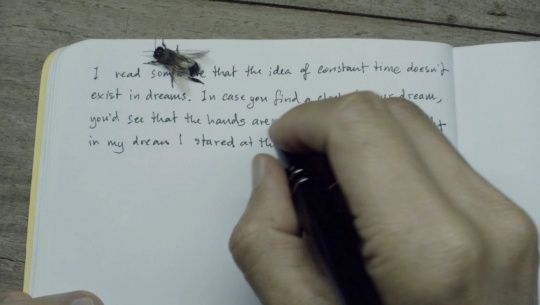 I read that the idea of constant time doesn't
exist in dreams. In case you find a dream,
you'd see that the hands are
in my dream I stared at